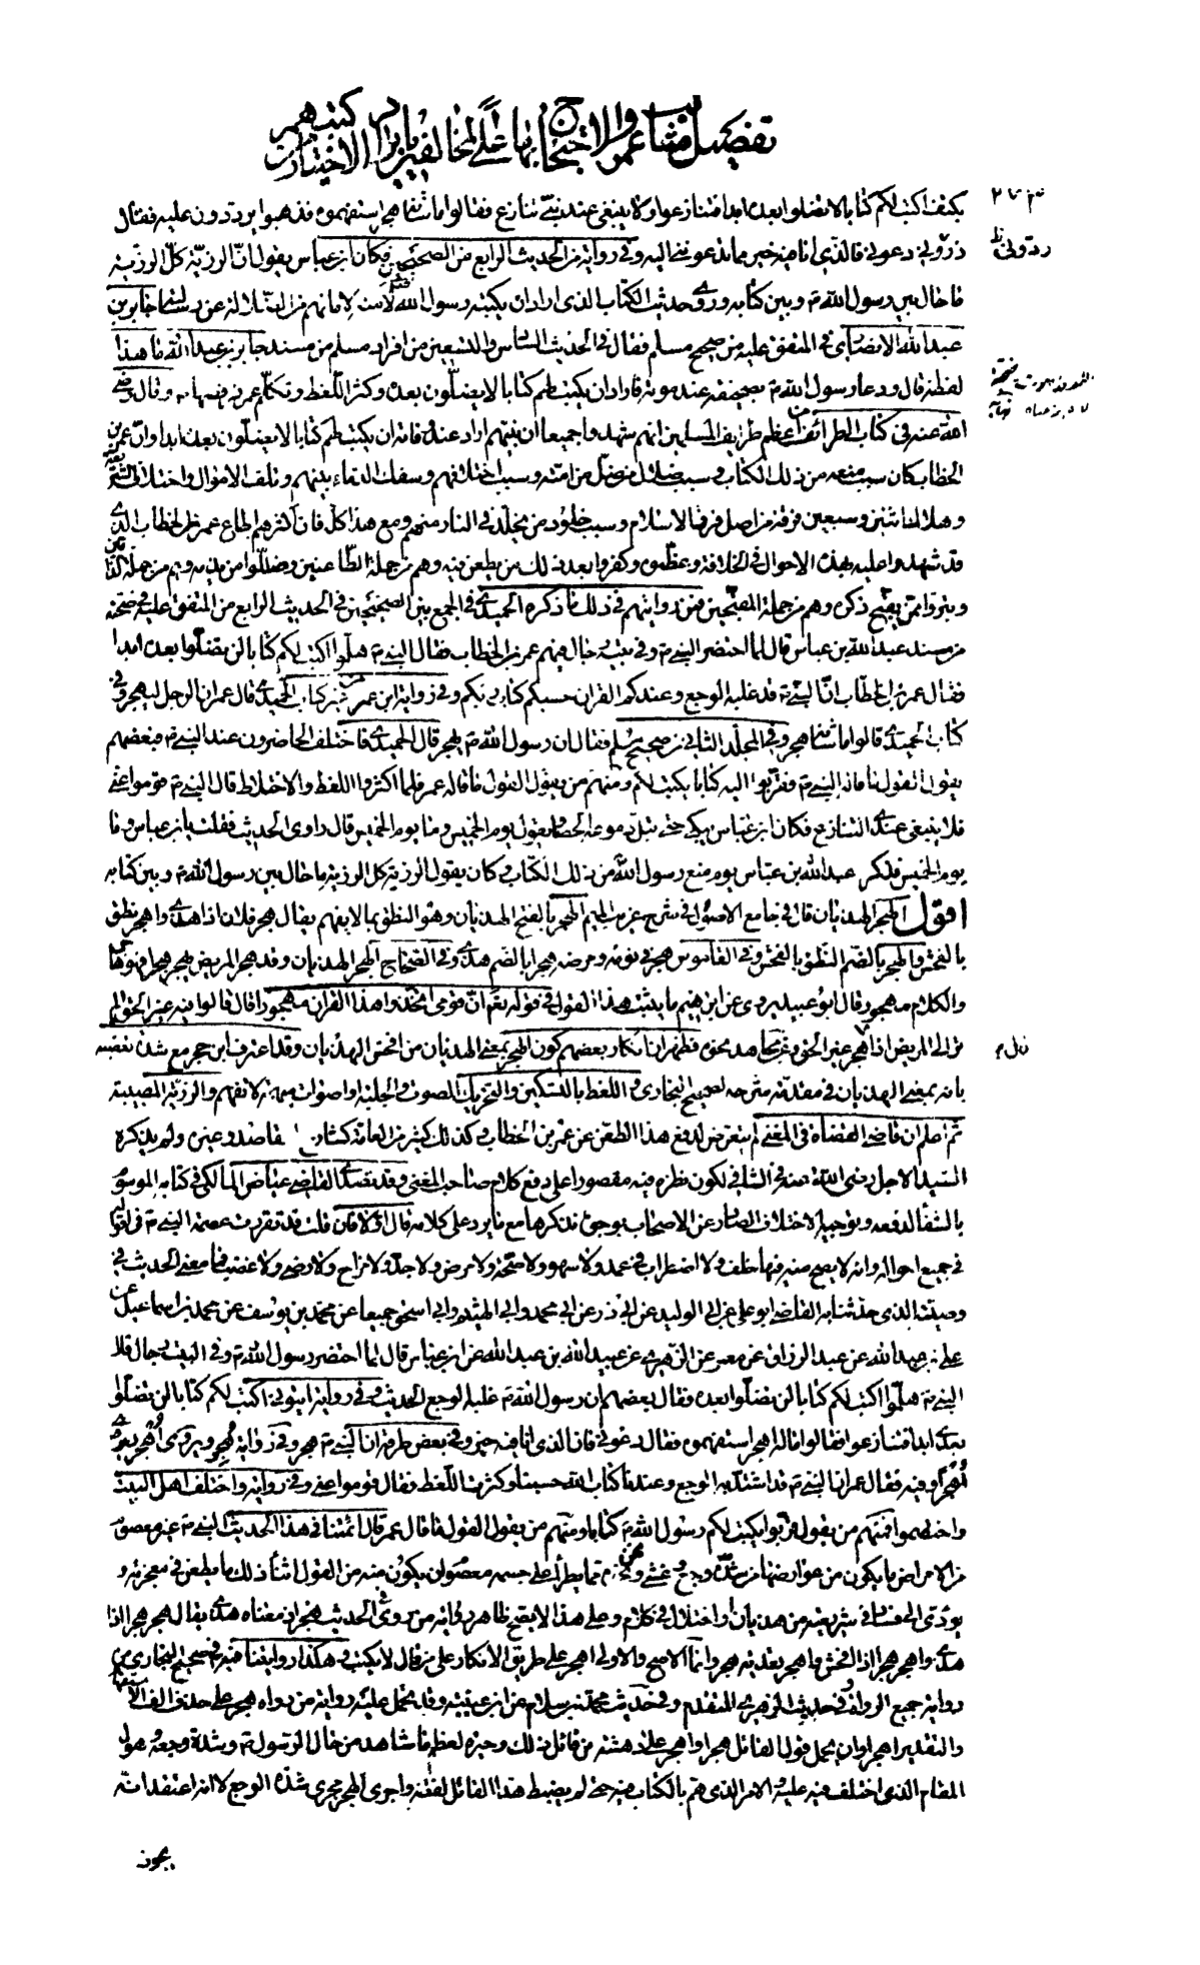 تفضيل مثالب عمر والاحتجاج بها على المخالفين بايراد الاخبار من كتبهم
بكتف اكتب لكم كتابا لا تضلوا بعده ابدا فتنازعوا ولا ينبغي عند نبي تنازع فقالوا ما شانه هجر استفهموه فذهبوا يرددون عليه فقال
ذروني دعوني فالذي انا فيه خير مما تدعونني اليه وفي رواية من الحديث الرابع من الصحيحين فكان ابن عباس يقول ان الرزية كل الرزية
ما حال بين رسول الله ص وبين كتابه وروى حديث الكتاب الذي اراد ان يكتبه رسول الله لامته لامانهم من الضلالة عن رسالته جابر بن
عبد الله الانصاري في المتفق عليه من صحيح مسلم فقال في الحديث السادس والتسعين من افراد مسلم من مسند جابر بن عبد الله ما هذا
لفظه قال ودعا رسول الله ص بصحيفة عند موته فاراد ان يكتب لهم كتابا لا يضلون بعده وكثر اللغط وتكلم عمر فرفضها ص وقال رضي
الله عنه في كتاب الطرائف من اعظم طرايف المسلمين انهم شهدوا جميعا ان نبيهم اراد عند وفاته ان يكتب لهم كتابا لا يضلون بعده ابدا وان عمر بن
الخطاب كان سبب منعه من ذلك الكتاب وسبب ضلال من ضل من امته وسبب اختلافهم وسفك الدماء بينهم وتلف الاموال واختلاف الشريعة
وهلاك اثنتين وسبعين فرقة من اصل فرق الاسلام وسبب خلود من يخلد في النار منهم ومع هذا كله فان اكثرهم اطاع عمر بن الخطاب الذي
قد شهدوا عليه بهذه الاحوال في الخلافة وعظموه وكفروا بعد ذلك من يطعن فيه وهم من جملة الطاعنين وضللوا من يذمه وهم من جملة الذامين
وتبرؤا ممن يقبح ذكره وهم من جملة المقبحين فمن روايتهم في ذلك ما ذكره الحميدي في الجمع بين الصحيحين في الحديث الرابع من المتفق عليه في صحته
من مسند عبد الله بن عباس قال لما احتضر النبي ص وفي بيته رجال فيهم عمر بن الخطاب فقال النبي ص هلموا اكتب لكم كتابا لن تضلوا بعده ابدا
فقال عمر بن الخطاب ان النبي ص قد غلبه الوجع وعندكم القران حسبكم كتاب ربكم وفي رواية ابن عمر من غير كتاب الحميدي قال عمر ان الرجل ليهجر وفي
كتاب الحميدي قالوا ما شانه هجر وفي المجلد الثاني من صحيح مسلم فقال ان رسول الله ص يهجر قال الحميدي فاختلف الحاضرون عند النبي ص فبعضهم
يقول القول ما قاله النبي ص فقربوا اليه كتابا يكتب لكم ومنهم من يقول القول ما قاله عمر فلما اكثروا اللغط والاختلاط قال النبي ص قوموا عني
فلا ينبغي عندي التنازع فكان ابن عباس يبكي حتى تبل دموعه الحصا ويقول يوم الخميس وما يوم الخميس قال راوي الحديث فقلت يا بن عباس وما
يوم الخميس فذكر عبد الله بن عباس يوم منع رسول الله من ذلك الكتاب وكان يقول الرزية كل الرزية ما حال بين رسول الله ص وبين كتابه
اقول الهجر الهذيان قال في جامع الاصول في شرح غريب الميم الهجر بالفتح الهذيان وهو النطق بما لا يفهم يقال هجر فلان اذا هذى واهجر نطق
بالفحش والهجر بالضم النطق بالفحش وفي القاموس هجر في نومه ومرضه هجرا بالضم هذى وفي الصحاح الهجر الهذيان وقد هجر المريض يهجر هجرا فهو هاجر
والكلام مهجور وقال ابو عبيد يروى عن ابرهيم ما يثبت هذا القول في قوله تعم ان قومي اتخذوا هذا القران مهجورا قال قالوا فيه غير الحق الم
تر الى المريض اذا هجر غير الحق وعن مجاهد نحوه فظهر ان انكار بعضهم كون الهجر بمعنى الهذيان من افحش الهذيان وقد اعترف ابن حجر مع شدة تعصبه
بانه بمعنى الهذيان في مقدمة شرحه لصحيح البخاري واللغط بالتسكين والتحريك الصوت والجلبة او اصوات مبهمة لا تفهم والرزية المصيبة
ثم اعلم ان قاضي القضاة في المغني لم يتعرض لدفع هذا الطعن عن عمر بن الخطاب وكذلك كثير من العامة كشارح المقاصد وغيره ولم يذكره
السيد الاجل رضي الله عنه في الشافي لكون نظره فيه مقصورا على دفع كلام صاحب المغني وقد تصدى القاضي عياض المالكي في كتابه الموسوم
بالشفا لدفعه وتوجيه الاختلاف الصادر عن الاصحاب بوجوه نذكرها مع ما يرد على كلامه قال اولا فان قلت قد تقررت عصمة النبي ص في اقواله
في جميع احواله وانه لا يصح منه فيها خلف ولا اضطراب في عمد ولا سهو ولا صحة ولا مرض ولا جد ولا مزاح ولا رضى ولا غضب فما معنى الحديث في
وصيته الذي حدثنا به القاضي ابو علي عن ابي الوليد عن ابي ذر عن ابي محمد وابي الهيثم وابي اسحق جميعا عن محمد بن يوسف عن محمد بن اسماعيل عن
علي بن عبد الله عن عبد الرزاق عن معمر عن الزهري عن عبيد الله بن عبد الله عن ابن عباس قال لما احتضر رسول الله ص وفي البيت رجال قال
النبي ص هلموا اكتب لكم كتابا لن تضلوا بعده فقال بعضهم ان رسول الله ص غلبه الوجع الحديث وفي رواية ايتوني اكتب لكم كتابا لن تضلوا
بعدي ابدا فتنازعوا فقالوا ما له اهجر استفهموه فقال دعوني فان الذي انا فيه خير وفي بعض طرقه ان النبي ص هجر وفي رواية هجر ويروى اهجر ويروى
اهجرا وفيه فقال عمر ان النبي ص قد اشتد به الوجع وعندنا كتاب الله حسبنا وكثر اللغط فقال قوموا عني وفي رواية واختلف اهل البيت
واختصموا فمنهم من يقول قربوا يكتب لكم رسول الله ص كتابا ومنهم من يقول القول ما قال عمر قال ائمتنا في هذا الحديث النبي ص غير معصوم
من الامراض ما يكون من عوارضها من شدة وجع وغشي ونحوه مما يطرأ على جسمه معصوم ان يكون منه من القول اثناء ذلك ما يطعن في معجزته و
يؤدي الى فساد في شريعته من هذيان او اختلال في كلام وعلى هذا لا يصح ظاهر رواية من روى في الحديث هجر اذ معناه هذى يقال هجر هجرا اذا
هذى واهجر هجرا اذا افحش واهجر تعدية هجر وانما الاصح والاولى اهجر على طريق الانكار على من قال لا يكتب وهكذا روايتنا فيه في صحيح البخاري من
رواية جميع الرواة في حديث الزهري المتقدم وفي حديث محمد بن سلام عن ابن عيينة وقد يحمل عليه رواية من رواه هجر على حذف الف الاستفهام
والتقدير اهجر او ان يحمل قول القائل هجر او اهجر على دهشة من قائل ذلك وحيرة لعظم ما شاهد من حال الرسول ص وشدة وجعه وهول
المقام الذي اختلف فيه عليه والامر الذي هم بالكتاب فيه حتى لم يضبط هذا القائل لفظه واجرى الهجر مجرى شدة الوجع لا انه اعتقد انه
يجوز